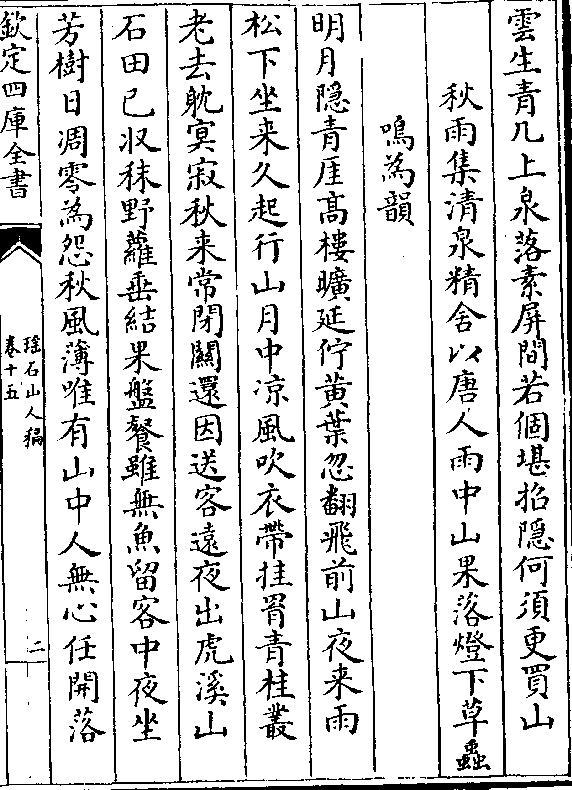 雲生青几上泉落素屏間若個堪招隱何須更買山
秋雨集清泉精舍以唐人雨中山果落燈下草蟲
鳴為韻
明月隱青厓高樓曠延佇黃葉忽翻飛前山夜来雨
松下坐来久起行山月中凉風吹衣帶挂罥青桂叢
老去躭寞寂秋来常閉關還因送客遠夜出虎溪山
石田已収秣野蘿垂結果盤餐雖無魚留客中夜坐
芳樹日凋零為怨秋風薄唯有山中人無心任開落
欽定四庫全書
瑶石山人稿
卷十五
二